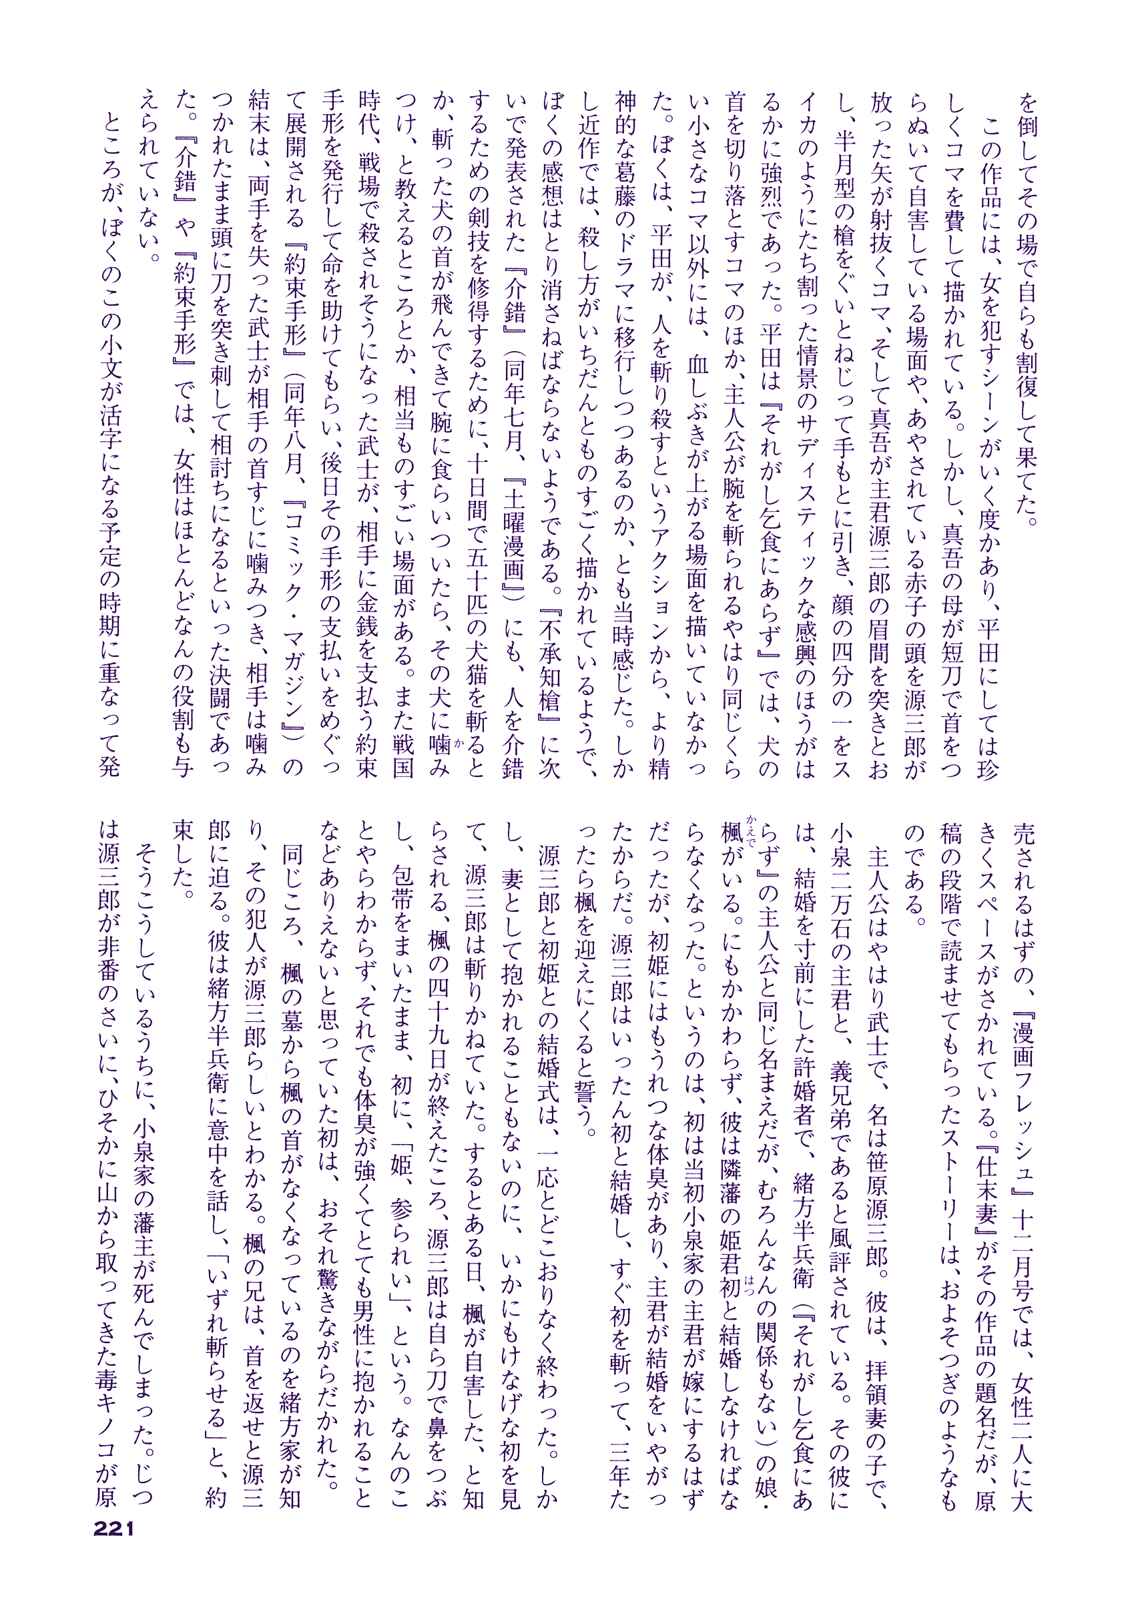 を倒してその場で自らも割復して果てた。
　この作品には、女を犯すシーンがいく度かあり、平田にしては珍
しくコマを費して描かれている。しかし、真吾の母が短刀で首をつ
らぬいて自害している場面や、あやされている赤子の頭を源三郎が
放った矢が射抜くコマ、そして真吾が主君源三郎の眉間を突きとお
し、半月型の槍をぐいとねじって手もとに引き、顔の四分の一をス
イカのようにたち割った情景のサディスティックな感興のほうがは
るかに強烈であった。平田は『それがし乞食にあらず』では、犬の
首を切り落とすコマのほか、主人公が腕を斬られるやはり同じくら
い小さなコマ以外には、血しぶきが上がる場面を描いていなかっ
た。ぼくは、平田が、人を斬り殺すというアクションから、より精
神的な葛藤のドラマに移行しつつあるのか、とも当時感じた。しか
し近作では、殺し方がいちだんとものすごく描かれているようで、
ぼくの感想はとり消さねばならないようである。『不承知槍』に次
いで発表された『介錯』（同年七月、『土曜漫画』）にも、人を介錯
するための剣技を修得するために、十日間で五十匹の犬猫を斬ると
か、斬った犬の首が飛んできて腕に食らいついたら、その犬に噛み
つけ、と教えるところとか、相当ものすごい場面がある。また戦国
時代、戦場で殺されそうになった武士が、相手に金銭を支払う約束
手形を発行して命を助けてもらい、後日その手形の支払いをめぐっ
て展開される『約束手形』（同年八月、『コミック・マガジン』）の
結末は、両手を失った武士が相手の首すじに噛みつき、相手は噛み
つかれたまま頭に刀を突き刺して相討ちになるといった決闘であっ
た。『介錯』や『約束手形』では、女性はほとんどなんの役割も与
えられていない。
　ところが、ぼくのこの小文が活字になる予定の時期に重なって発
売されるはずの、『漫画フレッシュ』十二月号では、女性二人に大
きくスペースがさかれている。『仕末妻』がその作品の題名だが、原
稿の段階で読ませてもらったストーリーは、およそつぎのようなも
のである。
　主人公はやはり武士で、名は笹原源三郎。彼は、拝領妻の子で、
小泉二万石の主君と、義兄弟であると風評されている。その彼に
は、結婚を寸前にした許婚者で、緒方半兵衛（『それがし乞食にあ
らず』の主人公と同じ名まえだが、むろんなんの関係もない）の娘・
楓がいる。にもかかわらず、彼は隣藩の姫君初と結婚しなければな
らなくなった。というのは、初は当初小泉家の主君が嫁にするはず
だったが、初姫にはもうれつな体臭があり、主君が結婚をいやがっ
たからだ。源三郎はいったん初と結婚し、すぐ初を斬って、三年た
ったら楓を迎えにくると誓う。
　源三郎と初姫との結婚式は、一応とどこおりなく終わった。しか
し、妻として抱かれることもないのに、いかにもけなげな初を見
て、源三郎は斬りかねていた。するとある日、楓が自害した、と知
らされる、楓の四十九日が終えたころ、源三郎は自ら刀で鼻をつぶ
し、包帯をまいたまま、初に、「姫、参られい」、という。なんのこ
とやらわからず、それでも体臭が強くてとても男性に抱かれること
などありえないと思っていた初は、おそれ驚きながらだかれた。
　同じころ、楓の墓から楓の首がなくなっているのを緒方家が知
り、その犯人が源三郎らしいとわかる。楓の兄は、首を返せと源三
郎に迫る。彼は緒方半兵衛に意中を話し、「いずれ斬らせる」と、約
束した。
　そうこうしているうちに、小泉家の藩主が死んでしまった。じつ
は源三郎が非番のさいに、ひそかに山から取ってきた毒キノコが原
221